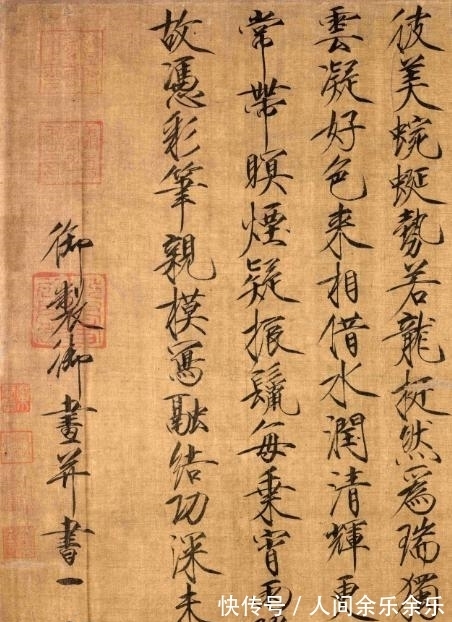 彼美蜿蜒勢若龍挺然為瑞獨
雲凝好色来相借水潤清輝更
常帶暝煙疑振鬣每乘宵雨
故憑彩筆親模寫融結功深未
御製御畫并書一
快传号 / 人间余乐余乐